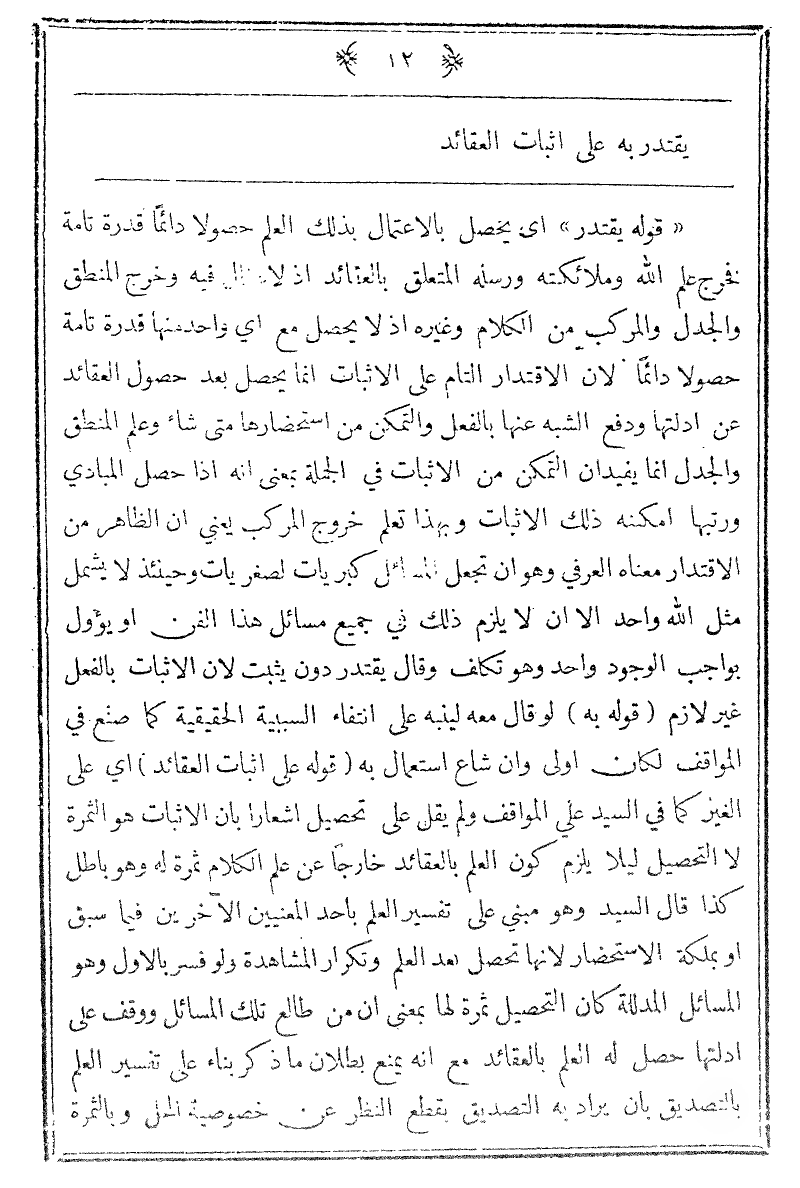 ﴿ ١٢ ﴾
يقتدر به على اثبات العقائد
« قوله يقتدر » اى يحصل بالاعتمال بذلك العلم حصولا دائمًا قدرة تامة
فخرج علم الله وملائكته ورسله المتعلق بالعقائد اذ لا فيه وخرج المنطق
والجدل والمركب من الكلام وغيره اذ لا يحصل مع اي واحد منها قدرة تامة
حصولا دائمًا لان الاقتدار التام على الاثبات انما يحصل بعد حصول العقائد
عن ادلتها ودفع الشبه عنها بالفعل والتمكن من استحضارها متى شاء وعلم المنطق
والجدل انما يفيدان التمكن من الاثبات في الجملة بمعنى انه اذا حصل المبادي
ورتبها امكنه ذلك الاثبات وبهذا تعلم خروج المركب يعني ان الظاهر من
الاقتدار معناه العرفي وهو ان تجعل المسائل كبريات لصغريات وحينئذ لا يشمل
مثل الله واحد الا ان لا يلزم ذلك في جميع مسائل هذا الفن او يؤول
بواجب الوجود واحد وهو تكلف وقال يقتدر دون يثبت لان الاثبات بالفعل
غير لازم ( قوله به ) لو قال معه لينبه على انتفاء السببية الحقيقية كما صنع في
المواقف لكان اولى وان شاع استعمال به ( قوله على اثبات العقائد ) اي على
الغير كما في السيد علي المواقف ولم يقل على تحصيل اشعارا بان الاثبات هو الثمرة
لا التحصيل ليلا يلزم كون العلم بالعقائد خارجًا عن علم الكلام ثمرة له وهو باطل
كذا قال السيد وهو مبني على تفسير العلم باحد المعنيين الآخرين فيما سبق
او بملكة الاستحضار لانها تحصل بعد العلم وتكرار المشاهدة ولو فسر بالاول وهو
المسائل المدللة كان التحصيل ثمرة لها بمعنى ان من طالع تلك المسائل ووقف على
ادلتها حصل له العلم بالعقائد مع انه يمنع بطلان ما ذكر بناء على تفسير العلم
بالتصديق بان يراد به التصديق بقطع النظر عن خصوصية المحل وبالثمرة